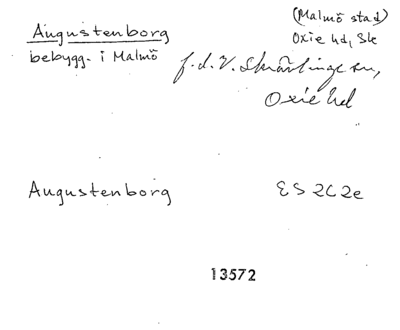 Augustenborg
(Malmö stad)
Oxie hd, Sk
bebygg. i Malmö
f.d. V. Skrävlinge sn,
Oxie hd
Augustenborg ES 2C2e
13572